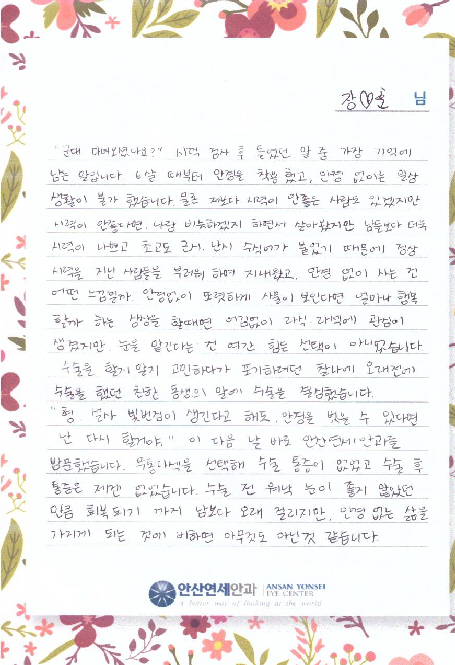 장♡훈 님
"군대 다녀오셨나요?" 시력 검사 후 들었던 말 중 가장 기억에
남는 말입니다. 6살 때부터 안경을 착용했고, 안경 없이는 일상
생활이 불가 했습니다. 물론 저보다 시력이 안좋은 사람도 있겠지만
시력이 안좋다면, 나랑 비슷하겠지 하면서 살아왔지만 남들보다 더욱
시력이 나쁘고 초고도 근시, 난시 수식어가 붙었기 때문에 정상
시력을 지닌 사람들을 부러워 하며 지내왔고, 안경 없이 사는 건
어떤 느낌일까. 안경없이 또렷하게 사물이 보인다면 얼마나 행복
할까 하는 상상을 할때면 어김없이 라식·라섹에 관심이
생겼지만, 눈을 맡긴다는 건 여간 힘든 선택이 아니었습니다
수술을 할지 말지 고민하다가 포기하려던 찰나에 오래전에
수술을 했던 친한 동생의 말에 수술을 결심했습니다.
"형 설사 빛번짐이 생긴다고 해도, 안경을 벗을 수 있다면
난 다시 할거야." 이 다음 날 바로 안산연세안과를
방문했습니다. 무통라섹을 선택해 수술 통증이 없었고 수술 후
통증은 제겐 없었습니다. 수술 전 워낙 눈이 좋지 않았던
만큼 회복되기 까지 남보다 오래 걸리지만, 안경 없는 삶을
가지게 되는 것에 비하면 아무것도 아닌것 같습니다.
안산연세안과 ANSAN YONSEI
EYE CENTER
A better way of looking at the world